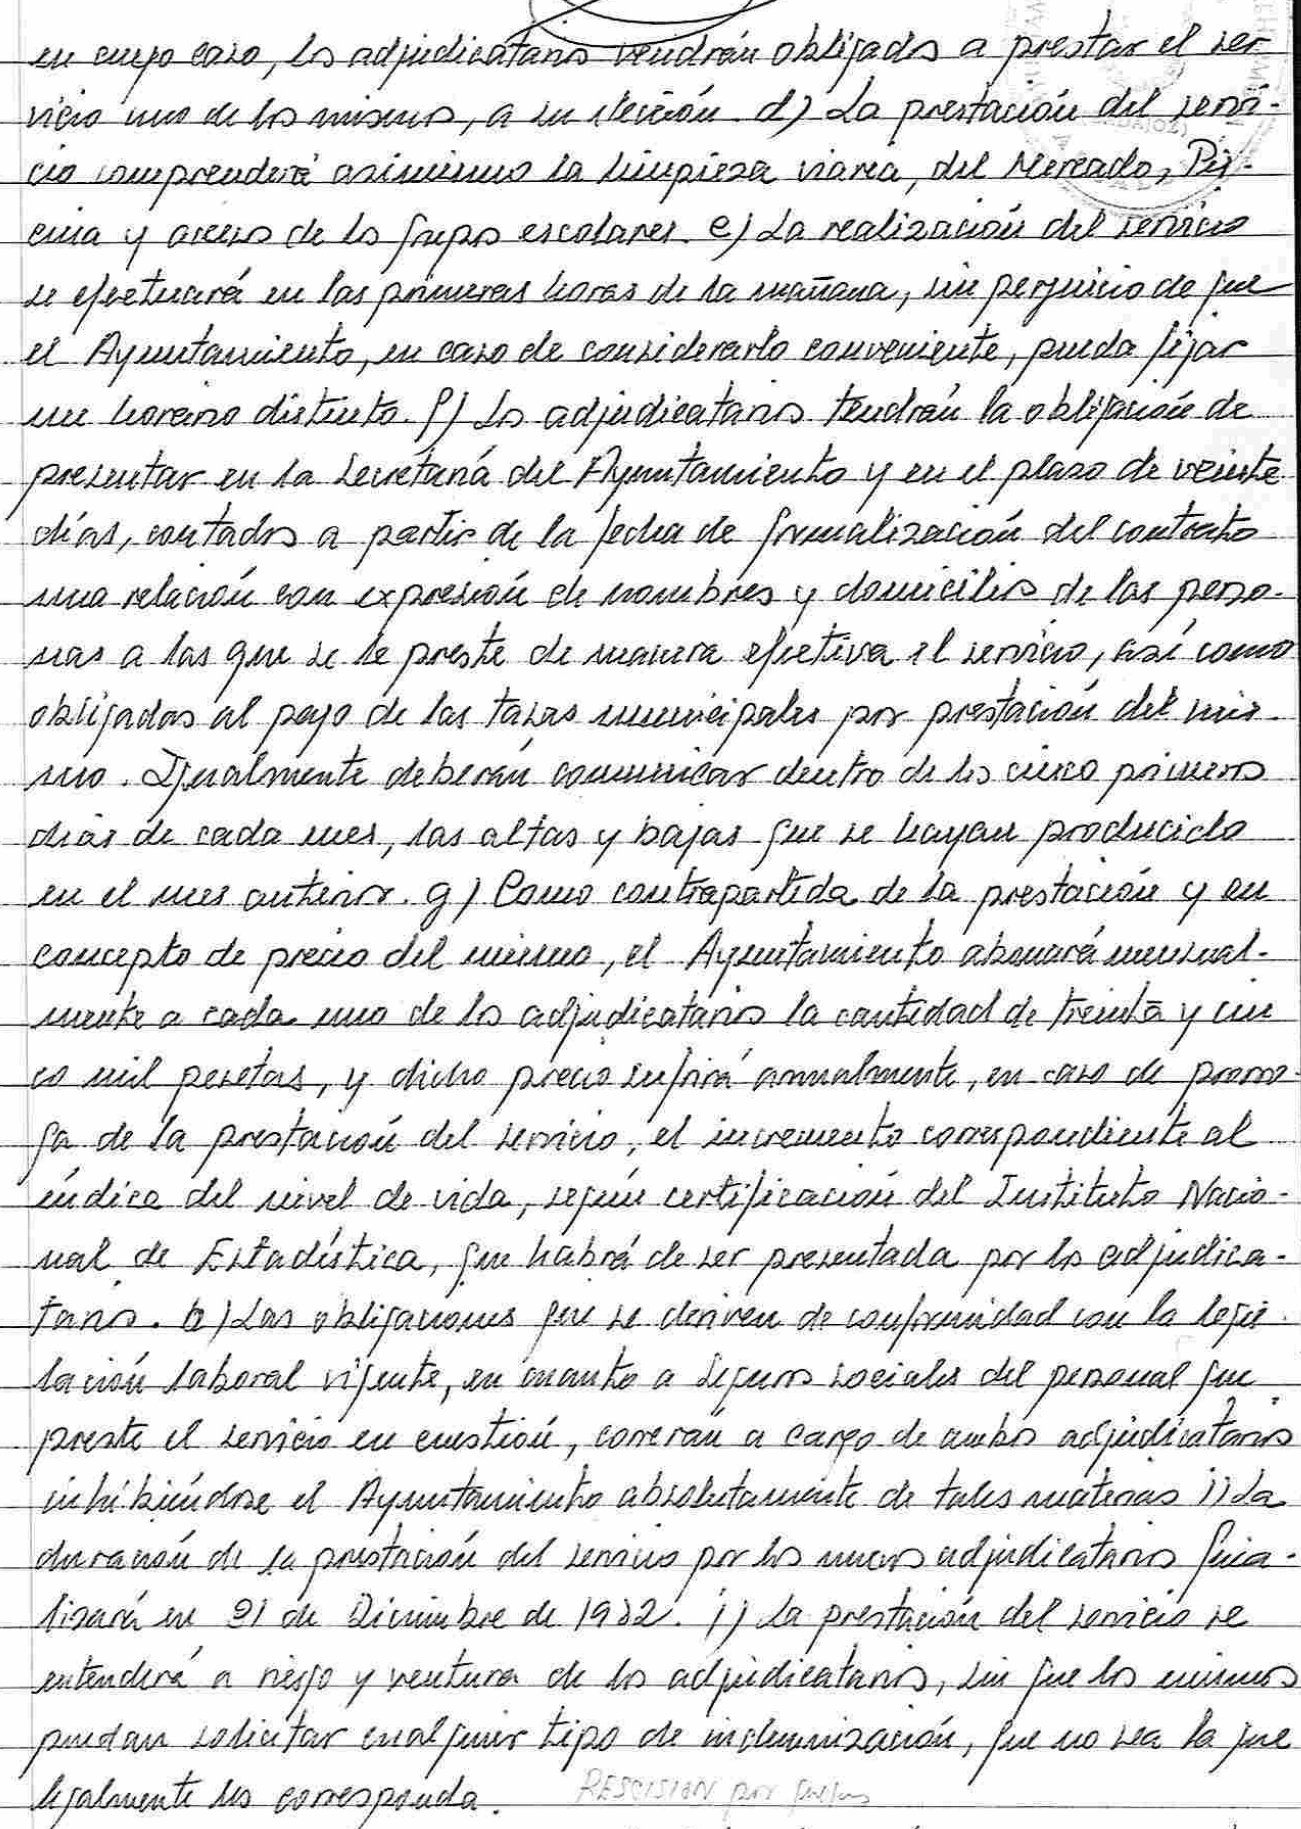 en cuyo caso, los adjudicatarios vendrán obligados a prestar el ser
vicio uno de los mismos, a su elección. d) La prestación del servi-
cio comprenderá asimismo la limpieza viaria, del Mercado, Pis-
cina y acceso de los grupos escolares. e) La realización del servicio
se efectuará en las primeras horas de la mañana, sin perjuicio de que
el Ayuntamiento, en caso de considerarlo conveniente, pueda fijar
un horario distinto. f) Los adjudicatarios tendrán la obligación de
presentar en la Secretaría del Ayuntamiento y en el plazo de veinte
días, contados a partir de la fecha de formalización del contrato
una relación con expresión de nombres y domicilios de las perso-
nas a las que se le preste de manera efectiva el servicio, así como
obligadas al pago de las tasas municipales por prestación del mis-
mo. Igualmente deberán comunicar dentro de los cinco primeros
días de cada mes, las altas y bajas que se hayan producido
en el mes anterior. g) Como contrapartida de la prestación y en
concepto de precio del mismo, el Ayuntamiento abonará mensual-
mente a cada uno de los adjudicatarios la cantidad de treinta y cin
co mil pesetas, y dicho precio sufrirá anualmente, en caso de prorro-
ga de la prestación del servicio, el incremento correspondiente al
índice del nivel de vida, según certificación del Instituto Nacio-
nal de Estadística, que habrá de ser presentada por los adjudica-
tarios. h) Las obligaciones que se deriven de conformidad con la legis-
lación laboral vigente, en cuanto a Seguros sociales del personal que
preste el servicio en cuestión, correrán a cargo de ambos adjudicatarios
inhibiéndose el Ayuntamiento absolutamente de tales materias i) La
duración de la prestación del servicio por los nuevos adjudicatarios fina-
lizará en 31 de Diciembre de 1982. j) La prestación del servicio se
entenderá a riesgo y ventura de los adjudicatarios, sin que los mismos
puedan solicitar cualquier tipo de indemnización, que no sea la que
legalmente les corresponda. RESCISION por